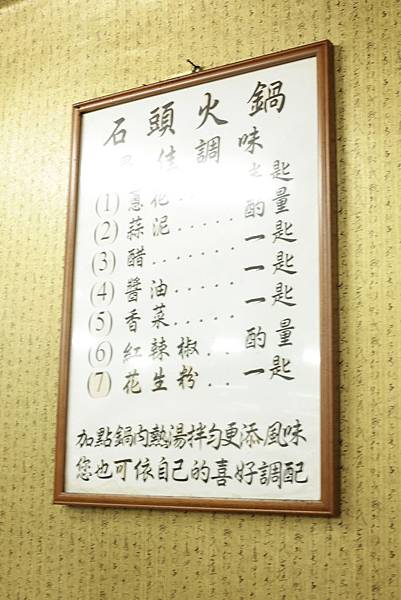 石頭火鍋
最佳調味
(1) 蔥花......半匙
(2) 蒜泥......酌量
(3) 醋......一匙
(4) 醬油......一匙
(5) 香菜......一匙
(6) 紅辣椒..酌量
(7) 花生粉..一匙
加點鍋內熱湯拌勻更添風味
您也可依自己的喜好調配